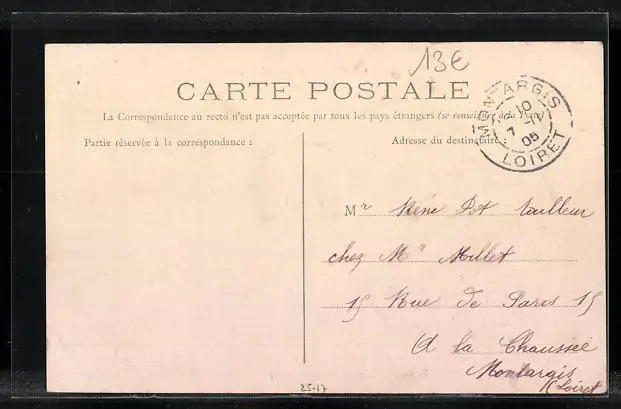 13€
CARTE POSTALE
La Correspondance au recto n'est pas acceptée par tous les pays étrangers (se renseigner à la Poste)
Partie réservée à la correspondance :
Adresse du destinataire :
MONTARGIS
10
7 -11
05
LOIRET
Mr René Pot tailleur
chez Mr Millet
15 Rue de Paris 15
A la Chaussée
Montargis
Loiret
25-17